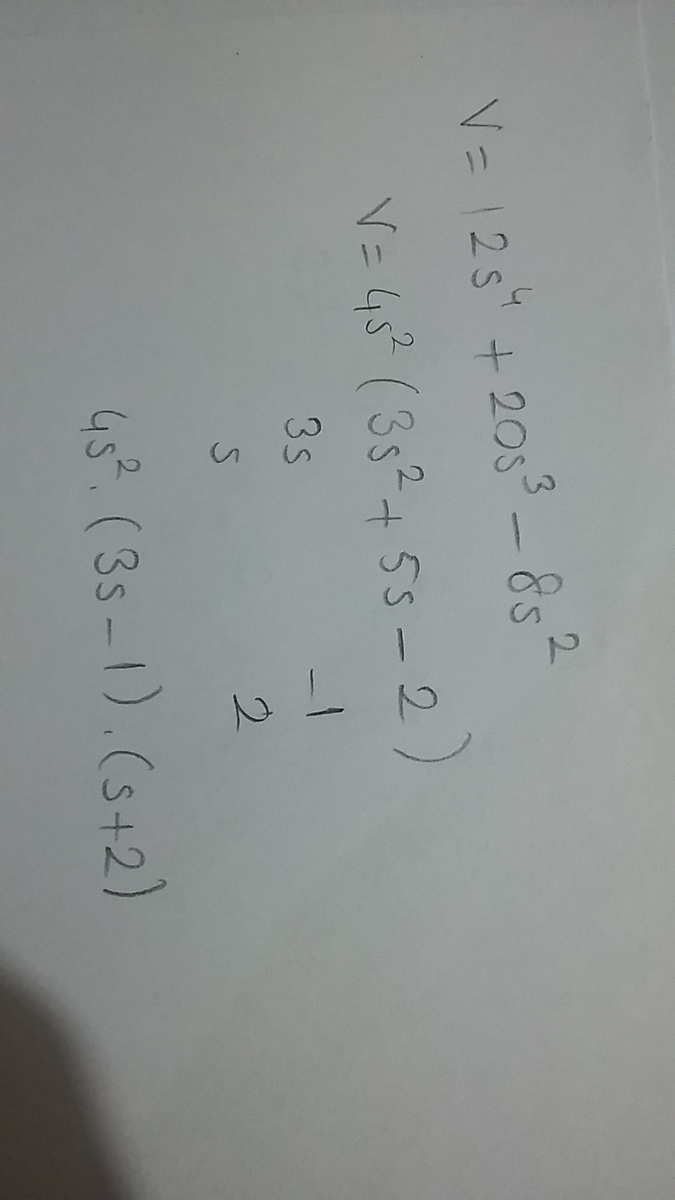 V = 12s⁴ + 20s³ - 8s²
V = 4s² (3s² + 5s - 2)
3s -1
s 2
4s² . (3s - 1) . (s + 2)